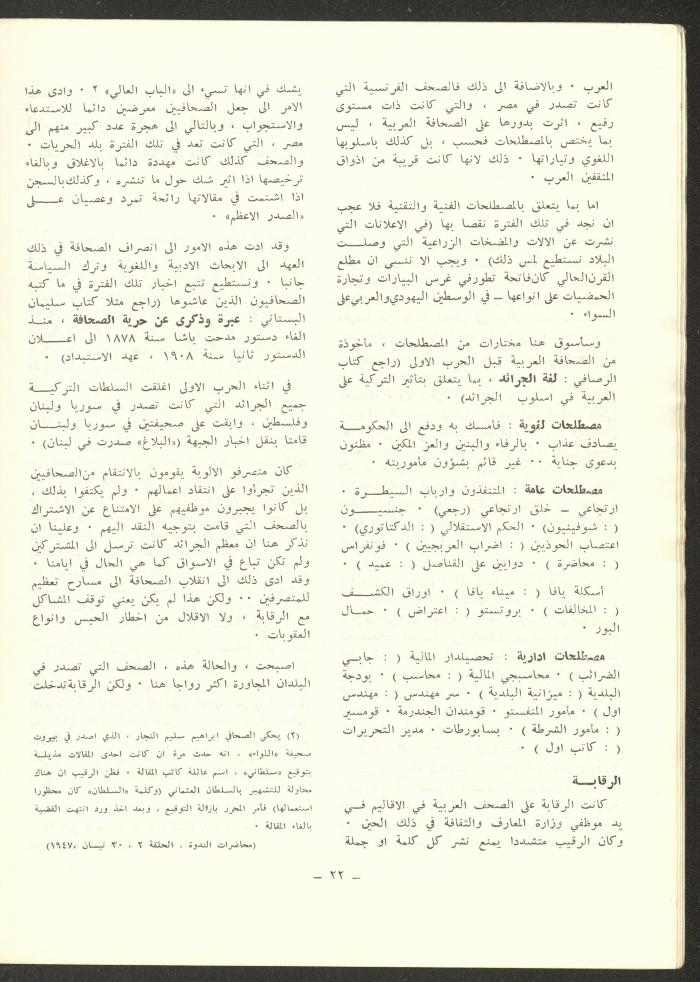 العرب ٠ وبالاضافة الى ذلك فالصحف الفرنسية التي
كانت تصدر في مصر ، والتي كانت ذات مستوى
رفيع ، اثرت بدورها على الصحافة العربية ، ليس
بما يختص بالمصطلحات فحسب ، بل كذلك باسلوبها
اللغوي وتياراتها ٠ ذلك لانها كانت قريبة من اذواق
المثقفين العرب ٠
اما بما يتعلق بالمصطلحات الفنية والتقنية فلا عجب
ان نجد في تلك الفترة نقصا بها (في الاعلانات التي
نشرت عن الالات والمضخات الزراعية التي وصلــت
البلاد نستطيع لمس ذلك) ٠ ويجب الا ننسى ان مطلع
القرن الحالي كان فاتحة تطور في غرس البيارات وتجارة
الحمضيات على انواعها ــ في الوسطين اليهودي والعربي على
السواء ٠
وسأسوق هنا مختارات من المصطلحات ، مأخوذة
من الصحافة العربية قبل الحرب الاولى (راجع كتاب
الرصافي : لغة الجرائد ، بما يتعلق بتأثير التركية على
العربية في اسلوب الجرائد) ٠
مصطلحات لغوية : فأمسك به ودفع الى الحكومــة
يصادف عذاب ٠ بالرفاء والبنين والعز المكين ٠ مظنون
بدعوى جناية ٠٠ غير قائم بشؤون مأموريته ٠
مصطلحات عامة : المتنفذون وارباب السيطــرة ٠
ارتجاعي ــ خلق ارتجاعي (رجعي) ٠ جنسيــــون
( : شوفينيون) ٠ الحكم الاستقلالي ( : الدكتاتوري) ٠
اعتصاب الحوذيين ( : اضراب العربجيين ) ٠ فونفراس
( : محاضرة ) ٠ دوايين على القناصل ( : عميد ) ٠
أسكلة يافا ( : ميناء يافا ) ٠ اوراق الكشــف
( : المخالفات ) ٠ بروتستو ( : اعتراض ) ٠ حمــال
البور ٠
مصطلحات ادارية : تحصيلدار المالية ( : جابــي
الضرائب ) ٠ محاسبجي المالية ( : محاسب ) ٠ بودجة
البلدية ( : ميزانية البلدية ) ٠ سر مهندس ( : مهندس
اول ) ٠ مأمور المنفستو ٠ قومندان الجندرمة ٠ قومسير
( : مأمور الشرطة ) ٠ بسابورطات ٠ مدير التحريرات
( : كاتب اول ) ٠
الرقابــة
كانت الرقابة على الصحف العربية في الاقاليم فــي
يد موظفي وزارة المعارف والثقافة في ذلك الحين ٠
وكان الرقيب متشددا يمنع نشر كل كلمة او جملة
يشك في انها تسيء الى «الباب العالي» ٢ ٠ وادى هذا
الامر الى جعل الصحافيين معرضين دائما للاستدعاء
والاستجواب ، وبالتالي الى هجرة عدد كبير منهم الى
مصر ، التي كانت تعد في تلك الفترة بلد الحريات ٠
والصحف كذلك كانت مهددة دائما بالاغلاق وبالغاء
ترخيصها اذا اثير شك حول ما تنشره ، وكذلك بالسجن
اذا اشتمت في مقالاتها رائحة تمرد وعصيان عــــلى
«الصدر الاعظم» ٠
وقد ادت هذه الامور الى انصراف الصحافة في ذلك
العهد الى الابحاث الادبية واللغوية وترك السياسة
جانبا ٠ ونستطيع تتبع اخبار تلك الفترة في ما كتبه
الصحافيون الذين عاشوها (راجع مثلا كتاب سليمان
البستاني : عبرة وذكرى عن حرية الصحافة ، منــذ
الغاء دستور مدحت باشا سنة ١٨٧٨ الى اعــــلان
الدستور ثانيا سنة ١٩٠٨ ، عهد الاستبداد) ٠
في اثناء الحرب الاولى اغلقت السلطات التركيــة
جميع الجرائد التي كانت تصدر في سوريا ولبنان
وفلسطين ، وابقت على صحيفتين في سوريا ولبنــان
قامتا بنقل اخبار الجبهة («البلاغ» صدرت في لبنان) ٠
كان متصرفو الالوية يقومون بالانتقام من الصحافيين
الذين تجرأوا على انتقاد اعمالهم ٠ ولم يكتفوا بذلك ،
بل كانوا يجبرون موظفيهم على الامتناع عن الاشتراك
بالصحف التي قامت بتوجيه النقد اليهم ٠ وعلينا ان
نذكر هنا ان معظم الجرائد كانت ترسل الى المشتركين
ولم تكن تباع في الاسواق كما هي الحال في ايامنا ٠
وقد ادى ذلك الى انقلاب الصحافة الى مسارح تعظيم
للمتصرفين ٠٠ ولكن هذا لم يكن يعني توقف المشاكل
مع الرقابة ، ولا الاقلال من اخطار الحبس وانواع
العقوبات ٠
اصبحت ، والحالة هذه ، الصحف التي تصدر في
البلدان المجاورة اكثر رواجا هنا ٠ ولكن الرقابة تدخلت
(٢) يحكي الصحافي ابراهيم سليم النجار ، الذي اصدر في بيروت
صحيفة «اللواء» ، انه حدث مرة ان كانت احدى المقالات مذيلــة
بتوقيع «سلطاني» ، اسم عائلة كاتب المقالة ٠ فظن الرقيب ان هناك
محاولة للتشهير بالسلطان العثماني (وكلمة «السلطان» كان محظورا
استعمالها) فأمر المحرر بازالة التوقيع ، وبعد اخذ ورد انتهت القضية
بالغاء المقالة ٠
(محاضرات الندوة ، الحلقة ٢ ، ٣٠ نيسان ،١٩٤٧)
ــ ٢٢ ــ